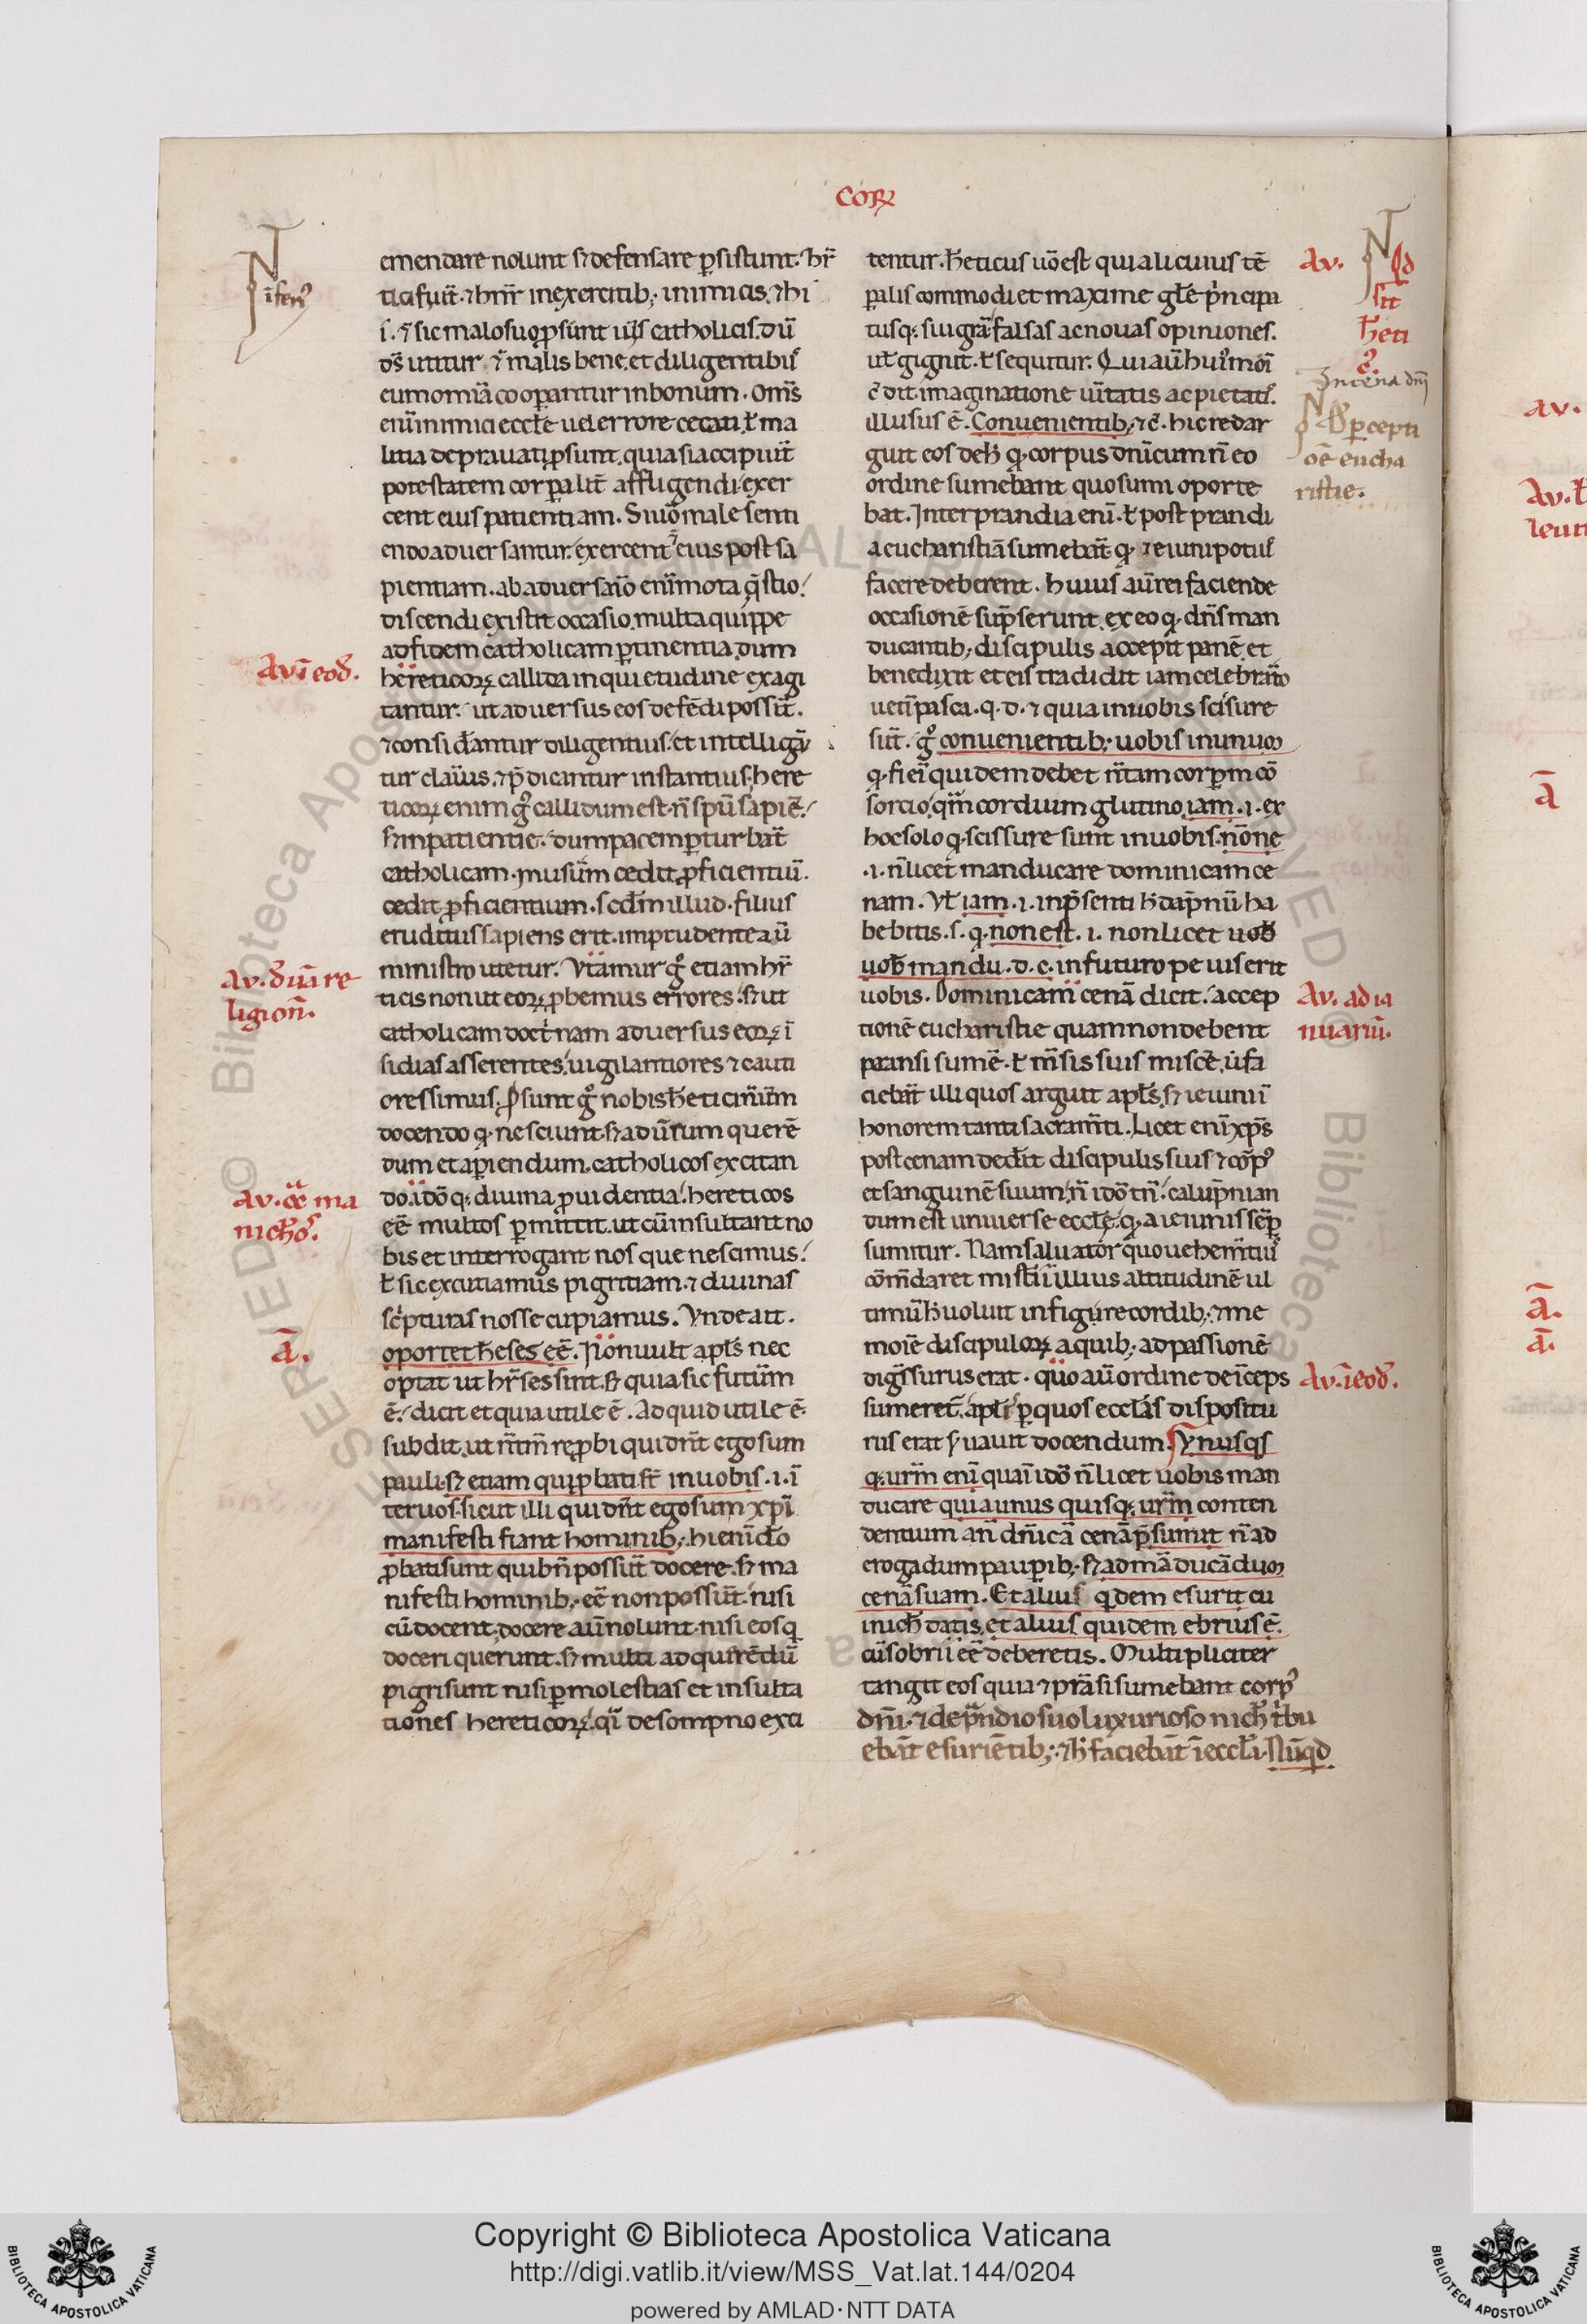 COR̃
emendare nolunt s; defensare ꝑsistunt. hr̃
tici fiũt. ⁊ hn̄r inexercitib; inimicis. ⁊ hi
ꝑ malos uꝙ ꝓsunt catholicis. dũ
dš utitur ⁊ malis bene. et diligentibꝰ
eum omĩa cooꝑantur inbonum. Om̄s
eni inimici eccłe uel errore cecati. ł ma
litia deprauati ꝓsunt. quia si accipiũt
potestatem corꝑalit̄ affligendi exer
cent eius patientiam. Si uō male senti
endo aduersantur. exercent eius post sa
pientiam. ab aduersario enim mota q̃stio
discendi existit occasio. multa quippe
ad fidem catholicam ꝑtinentia dum
hereticoꝝ callida inquietudine exagi
tantur. ut aduersus eos defẽdi possiñt.
⁊ considãntur diligentius. et intelligã
tur clarius. ⁊ p̄dicantur instantius. here
ticoꝝ enim g̊ callidum est. ñ spũ sapiẽ.
s; inpatientie. dum pacem ꝑturbãt
catholicam. cedit ꝓficientiũ.
cedit ꝓficientium. scđm illud. filius
eruditus sapiens erit. imprudente aũ
ministro utetur. Vtamur g̊ etiam hr̃
ticis non ut eoꝝ ꝓbemus errores. s; ut
catholicam doctnam aduersus eoꝝ ĩ
sidias asserentes. uigilantiores ⁊ cauti
ores simus. Ꝓsunt g̊ nobis ħetici
docendo ꝙ nesciunt s; ad uerum querẽ
dum et aꝑiendum. catholicos excitan
do. idō q; diuina ꝓuidentia. hereticos
eẽ multos ꝑmittit. ut cũ insultant no
bis et interrogant nos que nescimus.
ł sic excutiamus pigritiam. ⁊ diuinas
sc̍pturas nosse cupiamus. Vnde ait.
oportet ħeses eẽ. Non uult apłs nec
optat ut hr̃ses sint. s; quia sic futũm
ẽ. dicit et quia utile ẽ. Ad quid utile ẽ.
subdit. ut ñ tm̄ reꝓbi qui dñt ego sum
pauli. s; etiam qui ꝓbati st̄ inuobis. .i. ĩ
ter uos. sicut illi qui dñt ego sum xp̄i
manifesti fiant hominib;. hi enĩ
ꝓbati sunt qui bñ possũt docere. s; ma
nifesti hominib; eẽ non possũt. nisi
cũ docent. docere aũ nolunt. nisi eos q
doceri querunt. s; multi ad q̃rẽdũ
pigri sunt nisi ꝑ molestias et insulta
tiones hereticoꝝ. q̃i de sompno exci
tentur. ħeticus uō est qui alicuius tẽ
ꝑalis commodi et maxime głe p̍ncipa
tusq; sui grã falsas ac nouas opiniones.
uł gignit. ł sequitur. Qui aũ huꝰmōi
c̄dit imaginatione uĩtatis ac pietatꝭ.
illusus ẽ. Conuenientib; ⁊c̄. hic redar
guit eos de ꝙ corpus dñicum ñ eo
ordine sumebant quo sumi oporte
bat. Inter prandia enĩ. ł post prandi
a eucharistiã sumebãt ꝙ ieiuni potuſ
facere deberent. huius aũ rei faciende
occasionẽ sũpserunt. ex eo ꝙ dñs man
ducantib; discipulis accepit panẽ et
benedixit et eis tradidit iam celebrato
ueti pasca. q. d. ⁊ quia inuobis scisure
sũt. g̊ conuenientib; uobis inunum
ꝙ fieri quidem debet ñ tam corꝑum cō
sorcio qm̃ cordium glutino. iam .i. ex
hoc solo ꝙ scissure sunt inuobis. non ẽ
.i. ñ licet manducare dominicam ce
nam. Vł iam .i. inp̄senti ha
bebitis. s. ꝙ non est .i. non licet uob
uob mandu. d. c. infuturo pe uis erit
uobis. Dominicam cenã dicit. accep
tionẽ eucharistie quam non debent
pransi sumẽ. ł m̃sis suis misce. ut fa
ciebãt illi quos arguit apłs. s; ieiuni ĩ
honorem tanti sacram̃ti. Licet enĩ xp̄s
post cenam dedit discipulis suis ⁊ corpꝰ
et sanguinẽ suum. ñ idō tñ. calupnian
dum est uniuerse eccłe. ꝙ a ieiunis sẽꝑ
sumitur. Nam saluator quo uehem̃tiuſ
cōm̃daret misterii illius altitudinẽ ul
timũ h̄ uoluit infigere cordib; ⁊ me
moie discipuloꝝ a quib; ad passionẽ
dig̃ssurus erat. quo aũ ordine deĩceps
sumeret. apłiſ ꝑ quos eccłas dispositu
rus erat suauit docendum. Vnusqs
q; urm̃ enĩ quasi idō ñ licet uobis man
ducare quia unus quisq; urm̃ conten
dentium añ dñicã cenã p̄sumit ñ ad
erogadum pauꝑib; s; ad mãducãdum
cenã suam. Et alius q̍dem esurit cu
i nich datis. et alius quidem ebrius ẽ.
cũ sobrii eẽ deberetis. Multipliciter
tangit eos quia ⁊ prãsi sumebant corpꝰ
dñi. ⁊ de p̄ndio suo luxurioso nich t̍bu
ebãt esuriẽtib; ⁊ h̄ faciebãt ĩ eccła. Nũqd
ĩferꝰ
Av ĩ eod.
Av. d uã re
ligion̄.
Av. cō ma
nicħoꝰ.
ā.
Av.
Qd
sit
ħeti
cꝰ.
In cena dñi
De ꝑcepti
oẽ eucha
ristie.
Av. ad ia
nuariũ.
Av. ĩ eod.
av.
Av. ł
leuit
ā
ā.
ā.
Copyright © Biblioteca Apostolica Vaticana
http://digi.vatlib.it/view/MSS_Vat.lat.144/0204
powered by AMLAD·NTT DATA
BIBLIOTECA APOSTOLICA VATICANA
BIBLIOTECA APOSTOLICA VATICANA